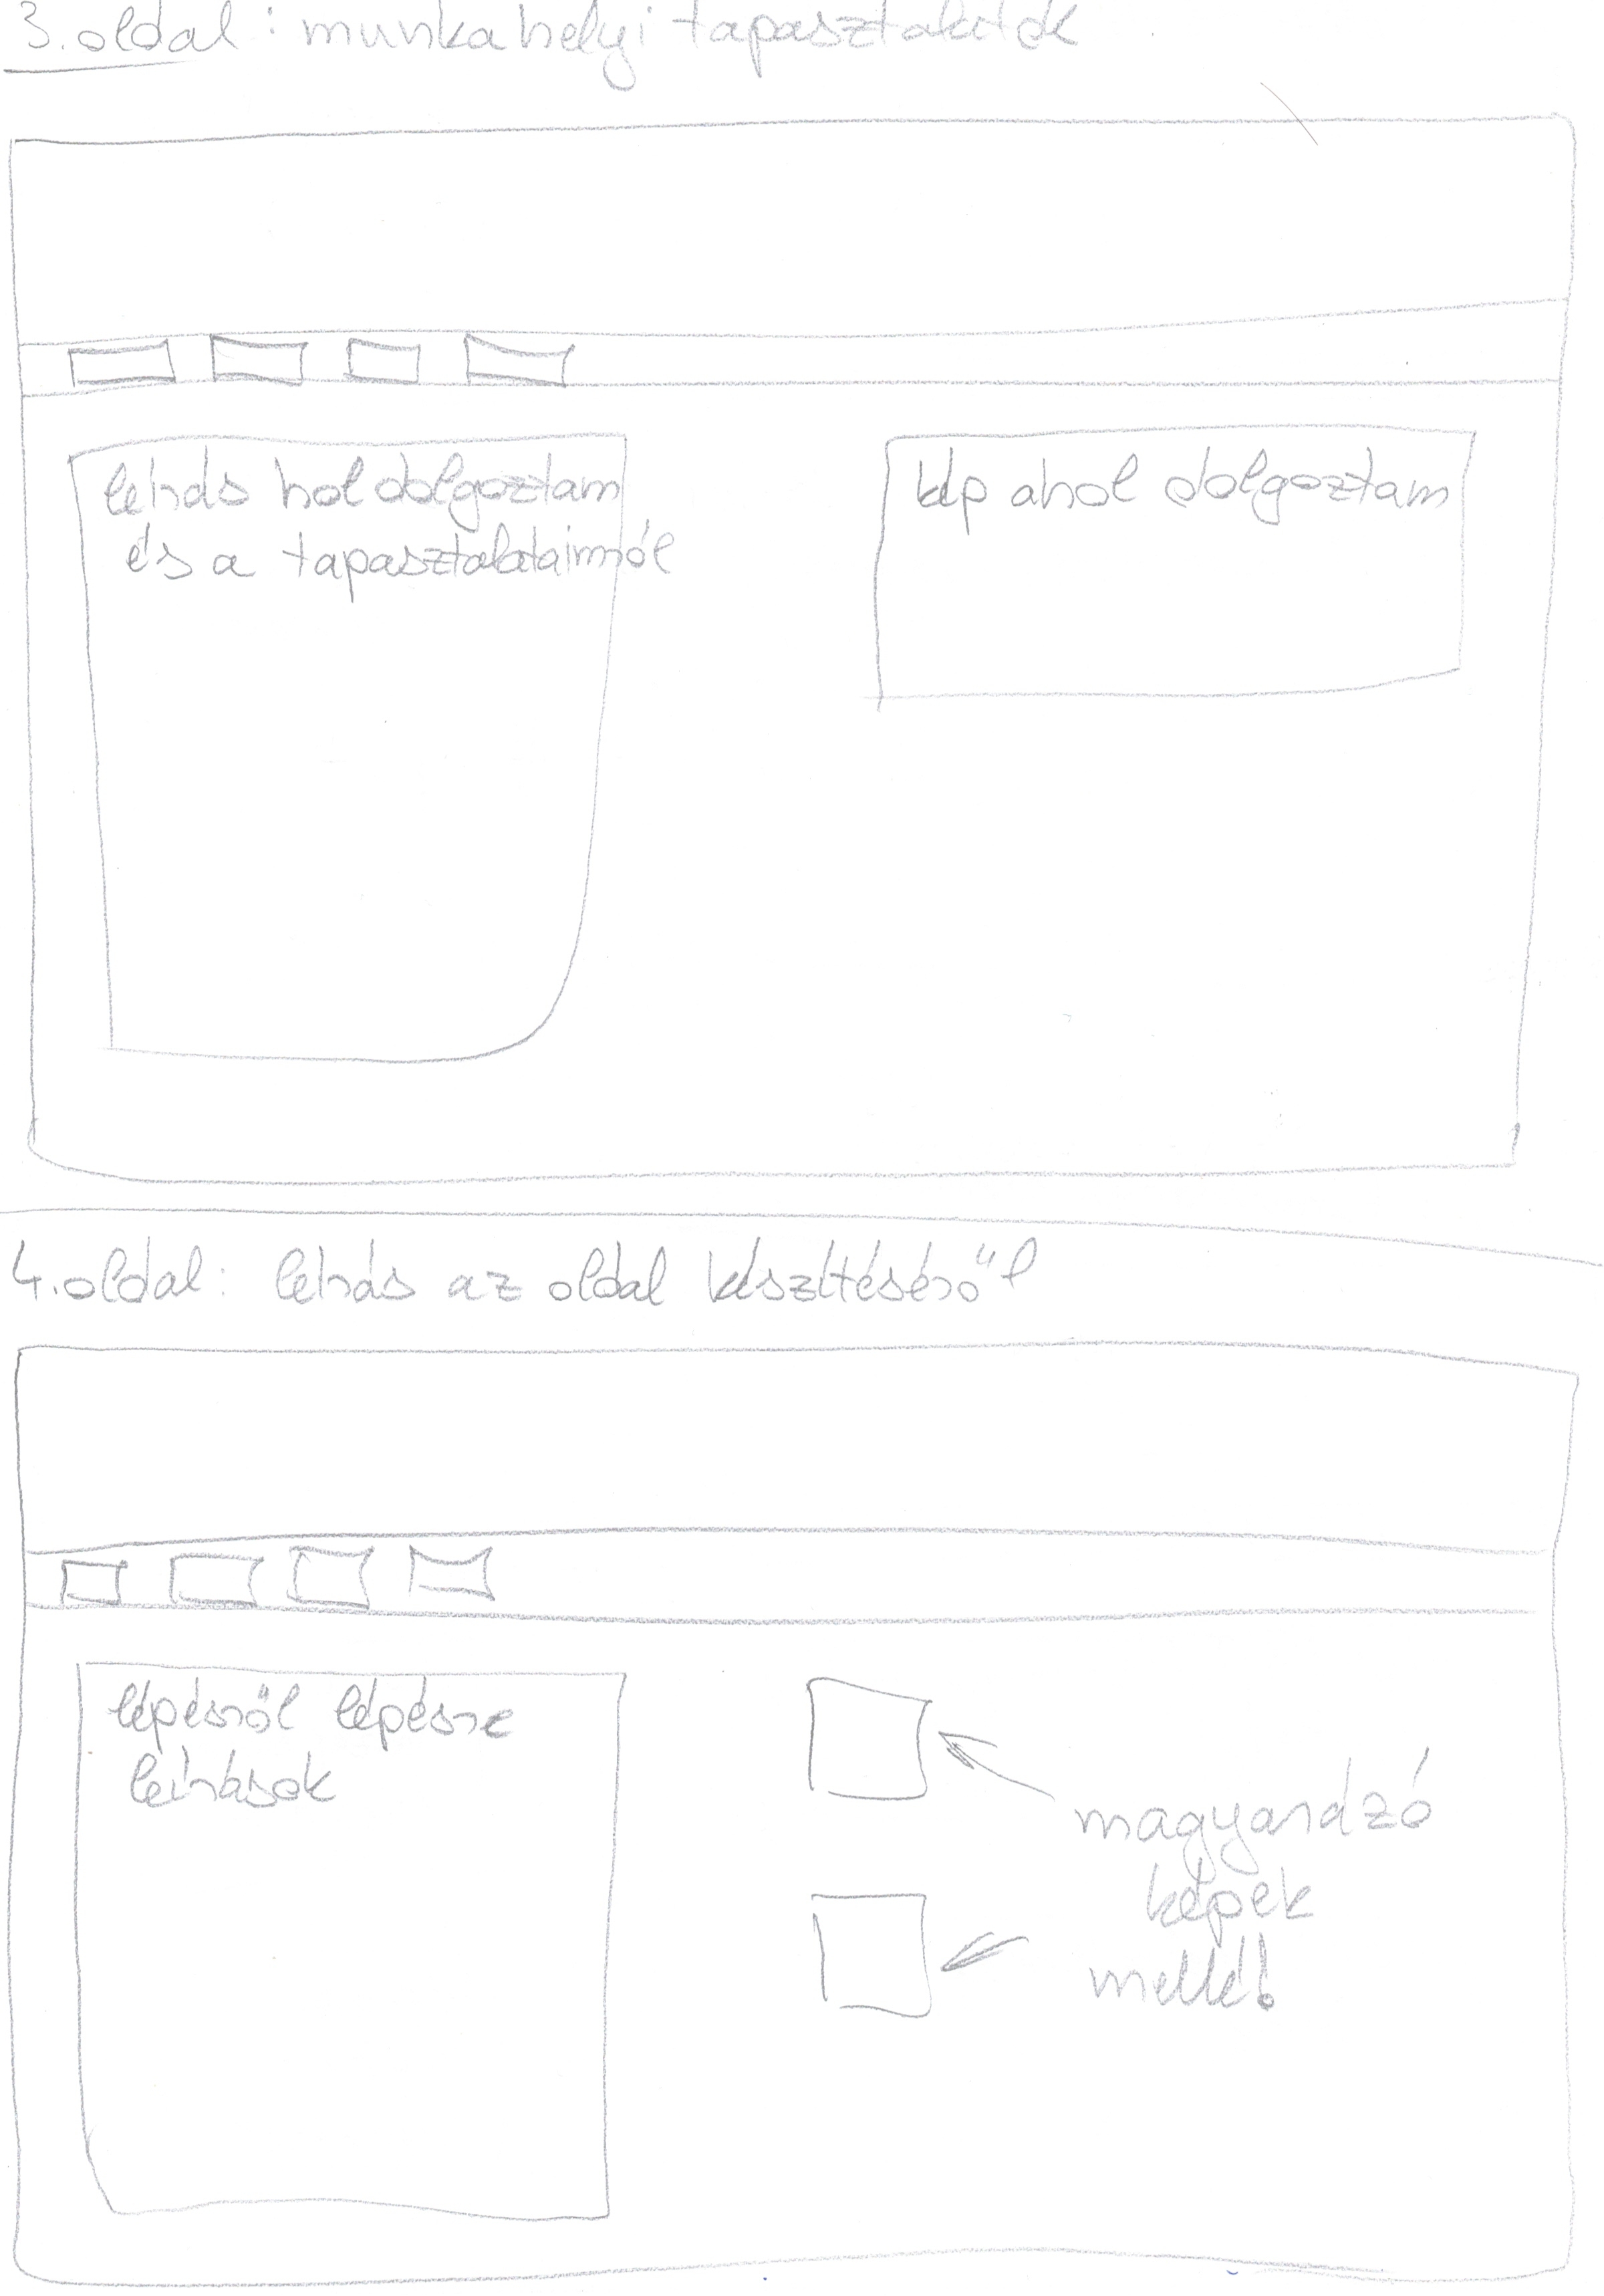 3. oldal: munkahelyi tapasztalatok
leírás hol dolgoztam
és a tapasztalataimról
kép ahol dolgoztam
4. oldal: leírás az oldal készítéséről
lépésről lépésre
leírások
magyarázó
képek
mellé!